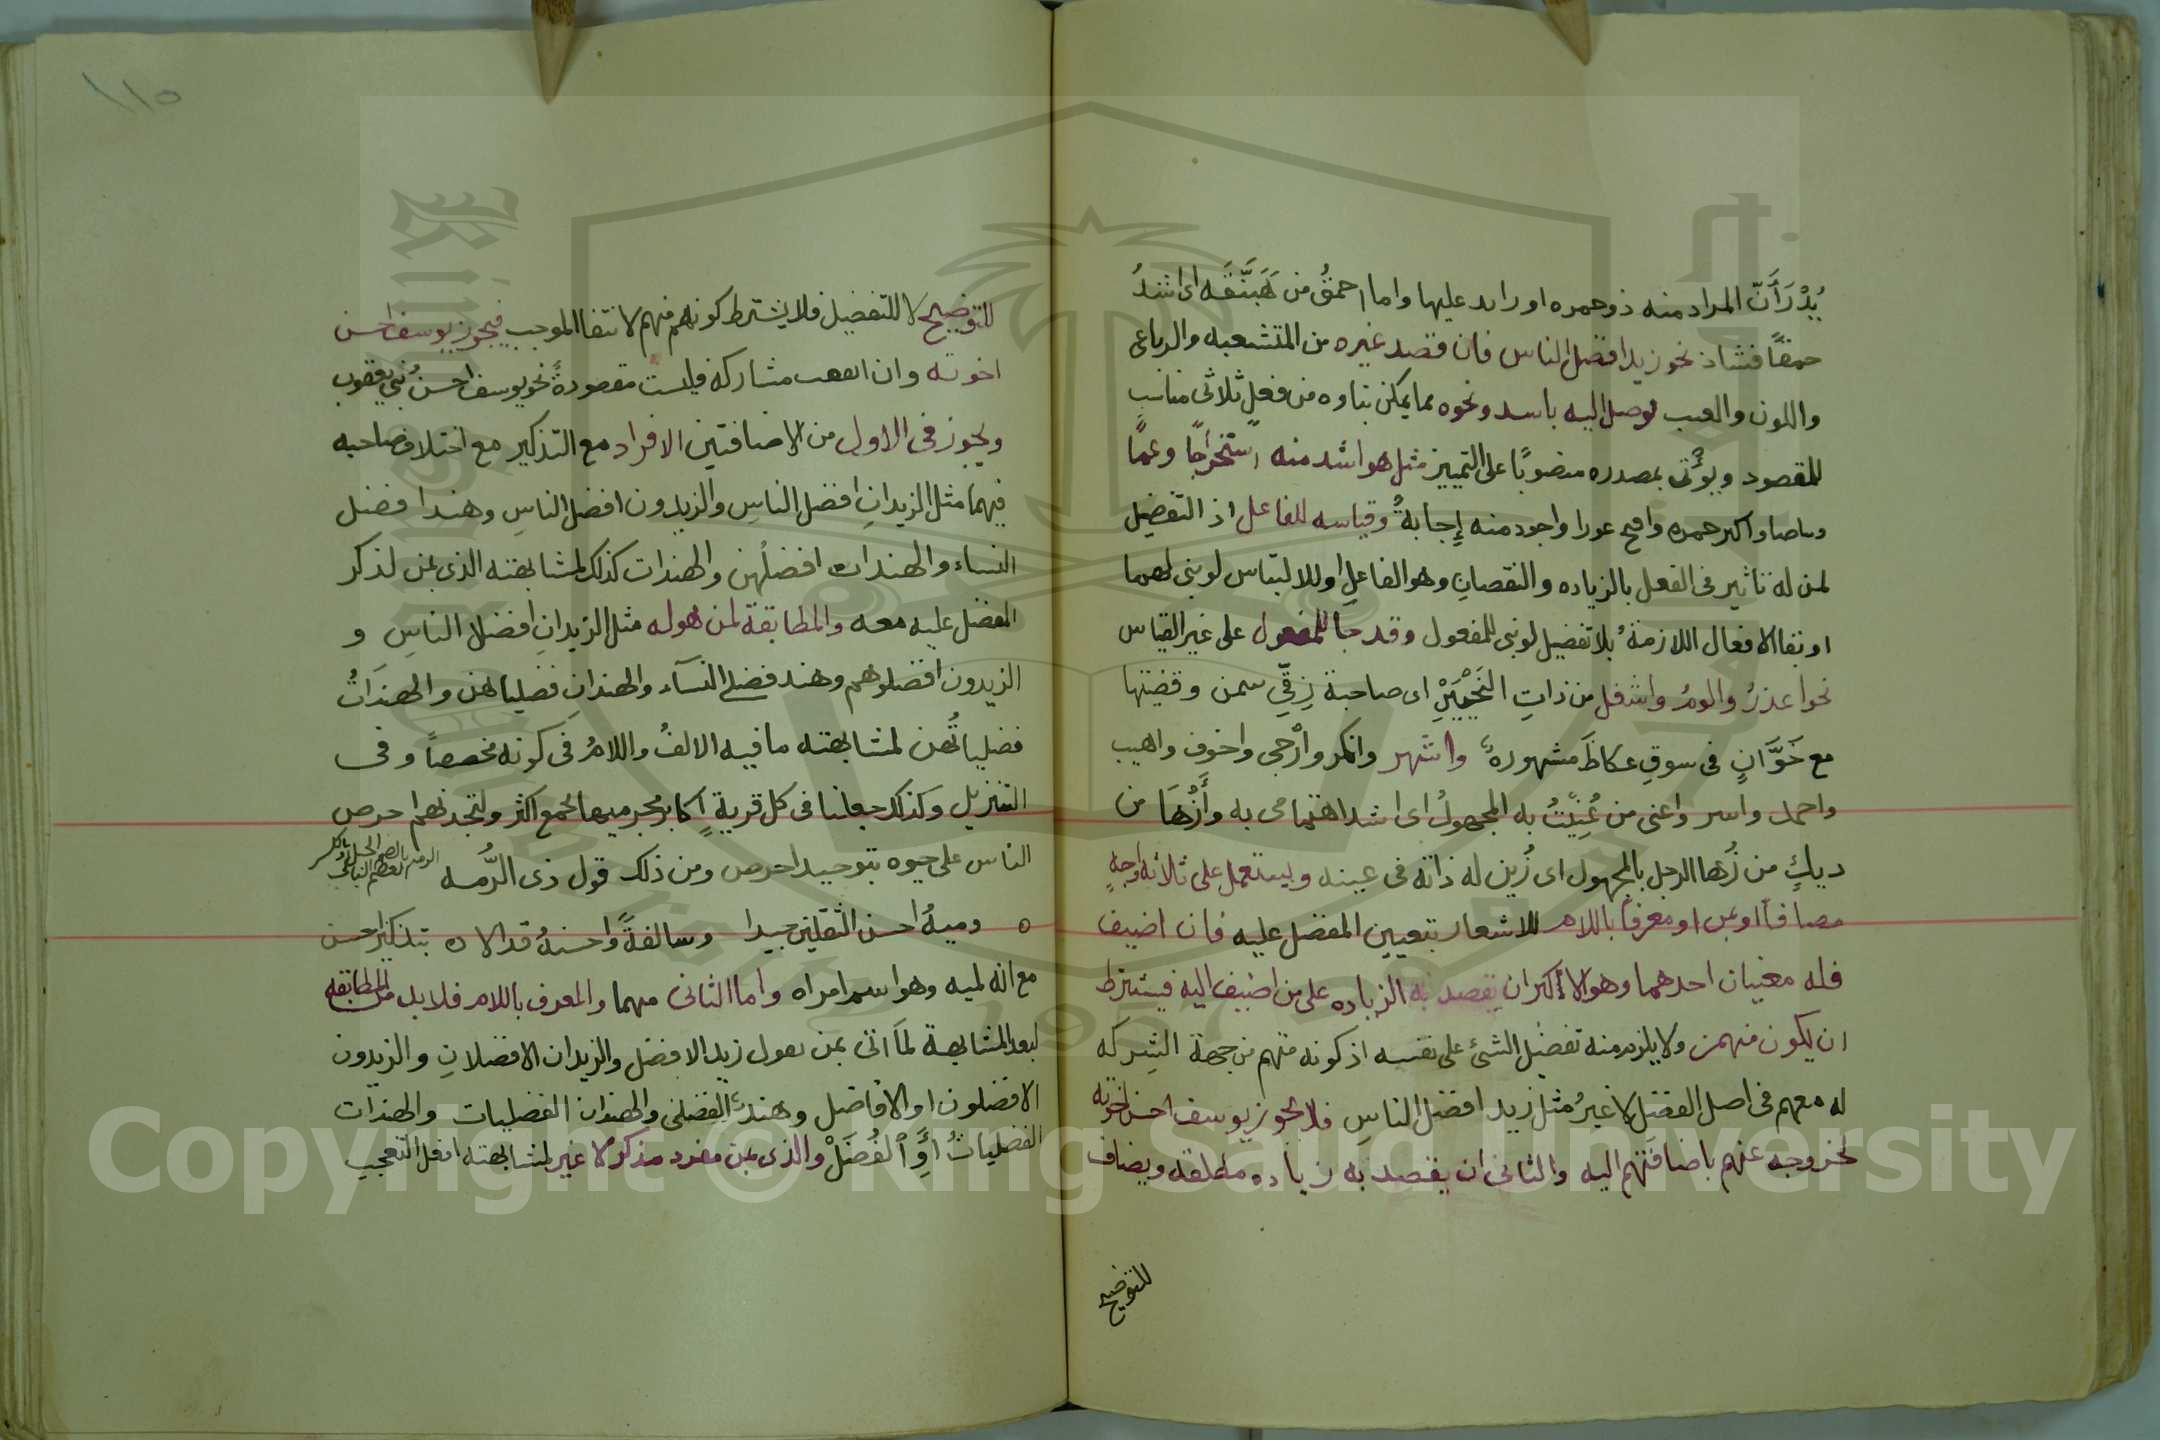 يُدْرَأَنَّ المراد منه ذو حمره او رايد عليها واما احمقُ من هَبَنَّقَه اى اشدُ
حمقًا فشاذ نحو زيد افضل الناس فان قصد غيره من المتشعبه والرباعى
واللون والعيب توصل اليه باسد ونحوه مما يمكن بناوه من فعل ثلاثى مناسب
للمقصود ويؤتى بمصدره منصوبًا على التمييز مثل هو اشد منه استخراجًا وعمًا
وساصا واكبر حمره واقبح عورا واجود منه إجابةً وقياسه للفاعل اذ التفضيل
لمن له تاثير فى الفعل بالزياده والنقصان وهو الفاعل او للالتباس لو بنى لهما
او بقا الافعال اللازمة بلا تفضيل لو بنى للمفعول وقد جا للمفعول على غير القياس
نحو اعذرُ والومُ واشغل من ذاتِ النَحْيَيْنِ اى صاحبة زِقَّي سمن وقضيتها
مع خَوَّاتٍ فى سوق عكاظَ مشهورةٌ واشهر وانكر وأرجى واخوف واهيب
واحمد واسر واعنى من عُنِيْتُ به المجهولُ اى اشد اهتمامى به وأَزْهَا من
ديكٍ من زُها الرجل بالمجهول اى زُين له ذاته فى عينه ويستعمل على ثلاثه اوجهٍ
مضافاً او بمن او معرفاً باللام للاشعار بتعيين المفضل عليه فان اضيف
فله معنيان احدهما وهو الاكثر ان يقصد به الزياده على من اضيف اليه فيشترط
ان يكون منهم ولا يلزم منه تفضيل الشئ على نفسه اذ كونه منهم من جهة الشركه
له معهم فى اصل الفضل لا غيرُ مثل زيد افضل الناس فلا يجوز يوسف احسن اخوته
لخروجه عنهم باضافتهم اليه والثانى ان يقصد به زياده مطلقه ويضاف
للتوضيح
١١٥
للتوضيح لا للتفضيل فلا يشترط كونه منهم لانتفا الموجب فيجوز يوسف احسن
اخوته وان اتفقت مشاركه فليست مقصودةً نحو يوسف احسنُ بني يعقوب
ويجوز فى الاول من الاضافتين الافراد مع التذكير مع اختلاف صاحبه
فيهما مثل الزيدانِ افضل الناسِ والزيدون افضل الناسِ وهند افضل
النساء والهندات افضلُهن والهندات كذلك لمشابهته الذى بمن لذكر
المفضل عليه معه والمطابقة لمن هو له مثل الزيدانِ افضلا الناسِ و
الزيدون افضلوهم وهند فضلى النسآء والهندانِ فضليا هن والهندَاتُ
فضلياتُهن لمشابهته ما فيه الالفُ واللامُ فى كونه مخصصاً وفى
التنزيل وكذلك جعلنا فى كل قرية اكابر مجرميها لجمع اكثر ولتجدنهم احرص
الناس على حيوه بتوحيد احرص ومن ذلك قول ذى الرُّمه
ه وميةُ احسن الثقلين جيدا وسالفةً واحسنهُ قدالا ه بتذكير احسن
مع انه لميه وهو اسم امراه واما الثانى منهما والمعرف باللام فلا بد من المطابقه
لبعد المشابهة لمَا اتى بمن تقول زيد الافضل والزيدان الافضلانِ والزيدون
الافضلون او الافاضل وهندٌ الفضلى والهندان الفضليان والهندات
الفضليَاتُ أوِ ٱلفُضَلْ والذى بمن مفرد مذكر لا غير لمشابهته افعل التعجيب
Copyright © King Saud University